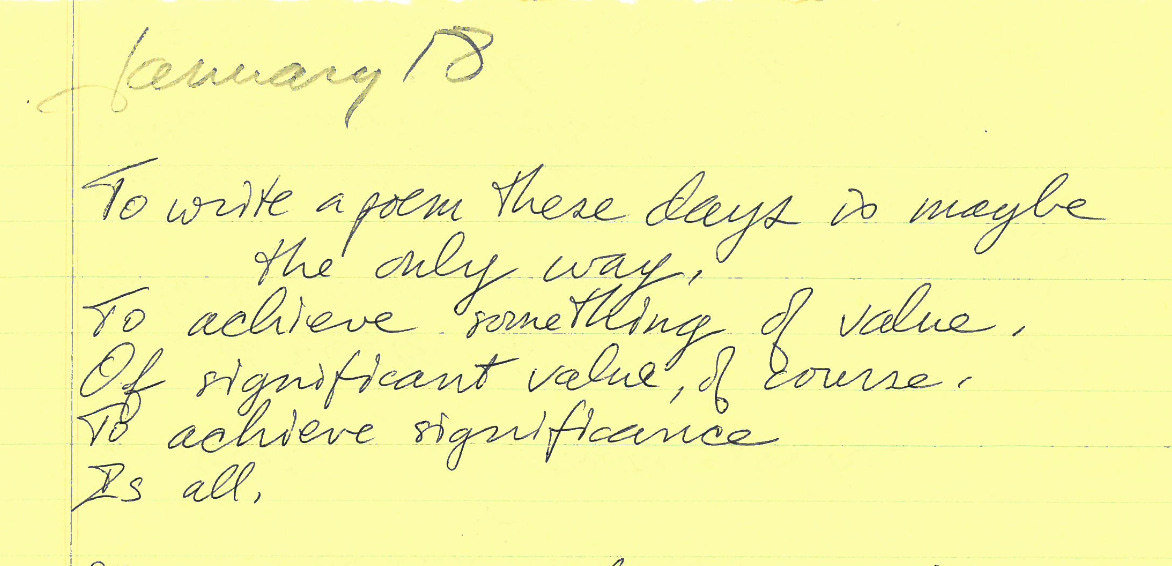 January 18
To write a poem these days is maybe
the only way.
To achieve something of value.
Of significant value, of course.
To achieve significance
Is all.